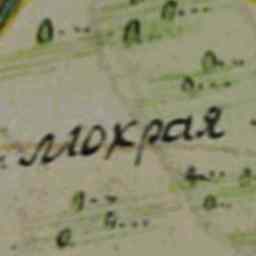 Мокрая